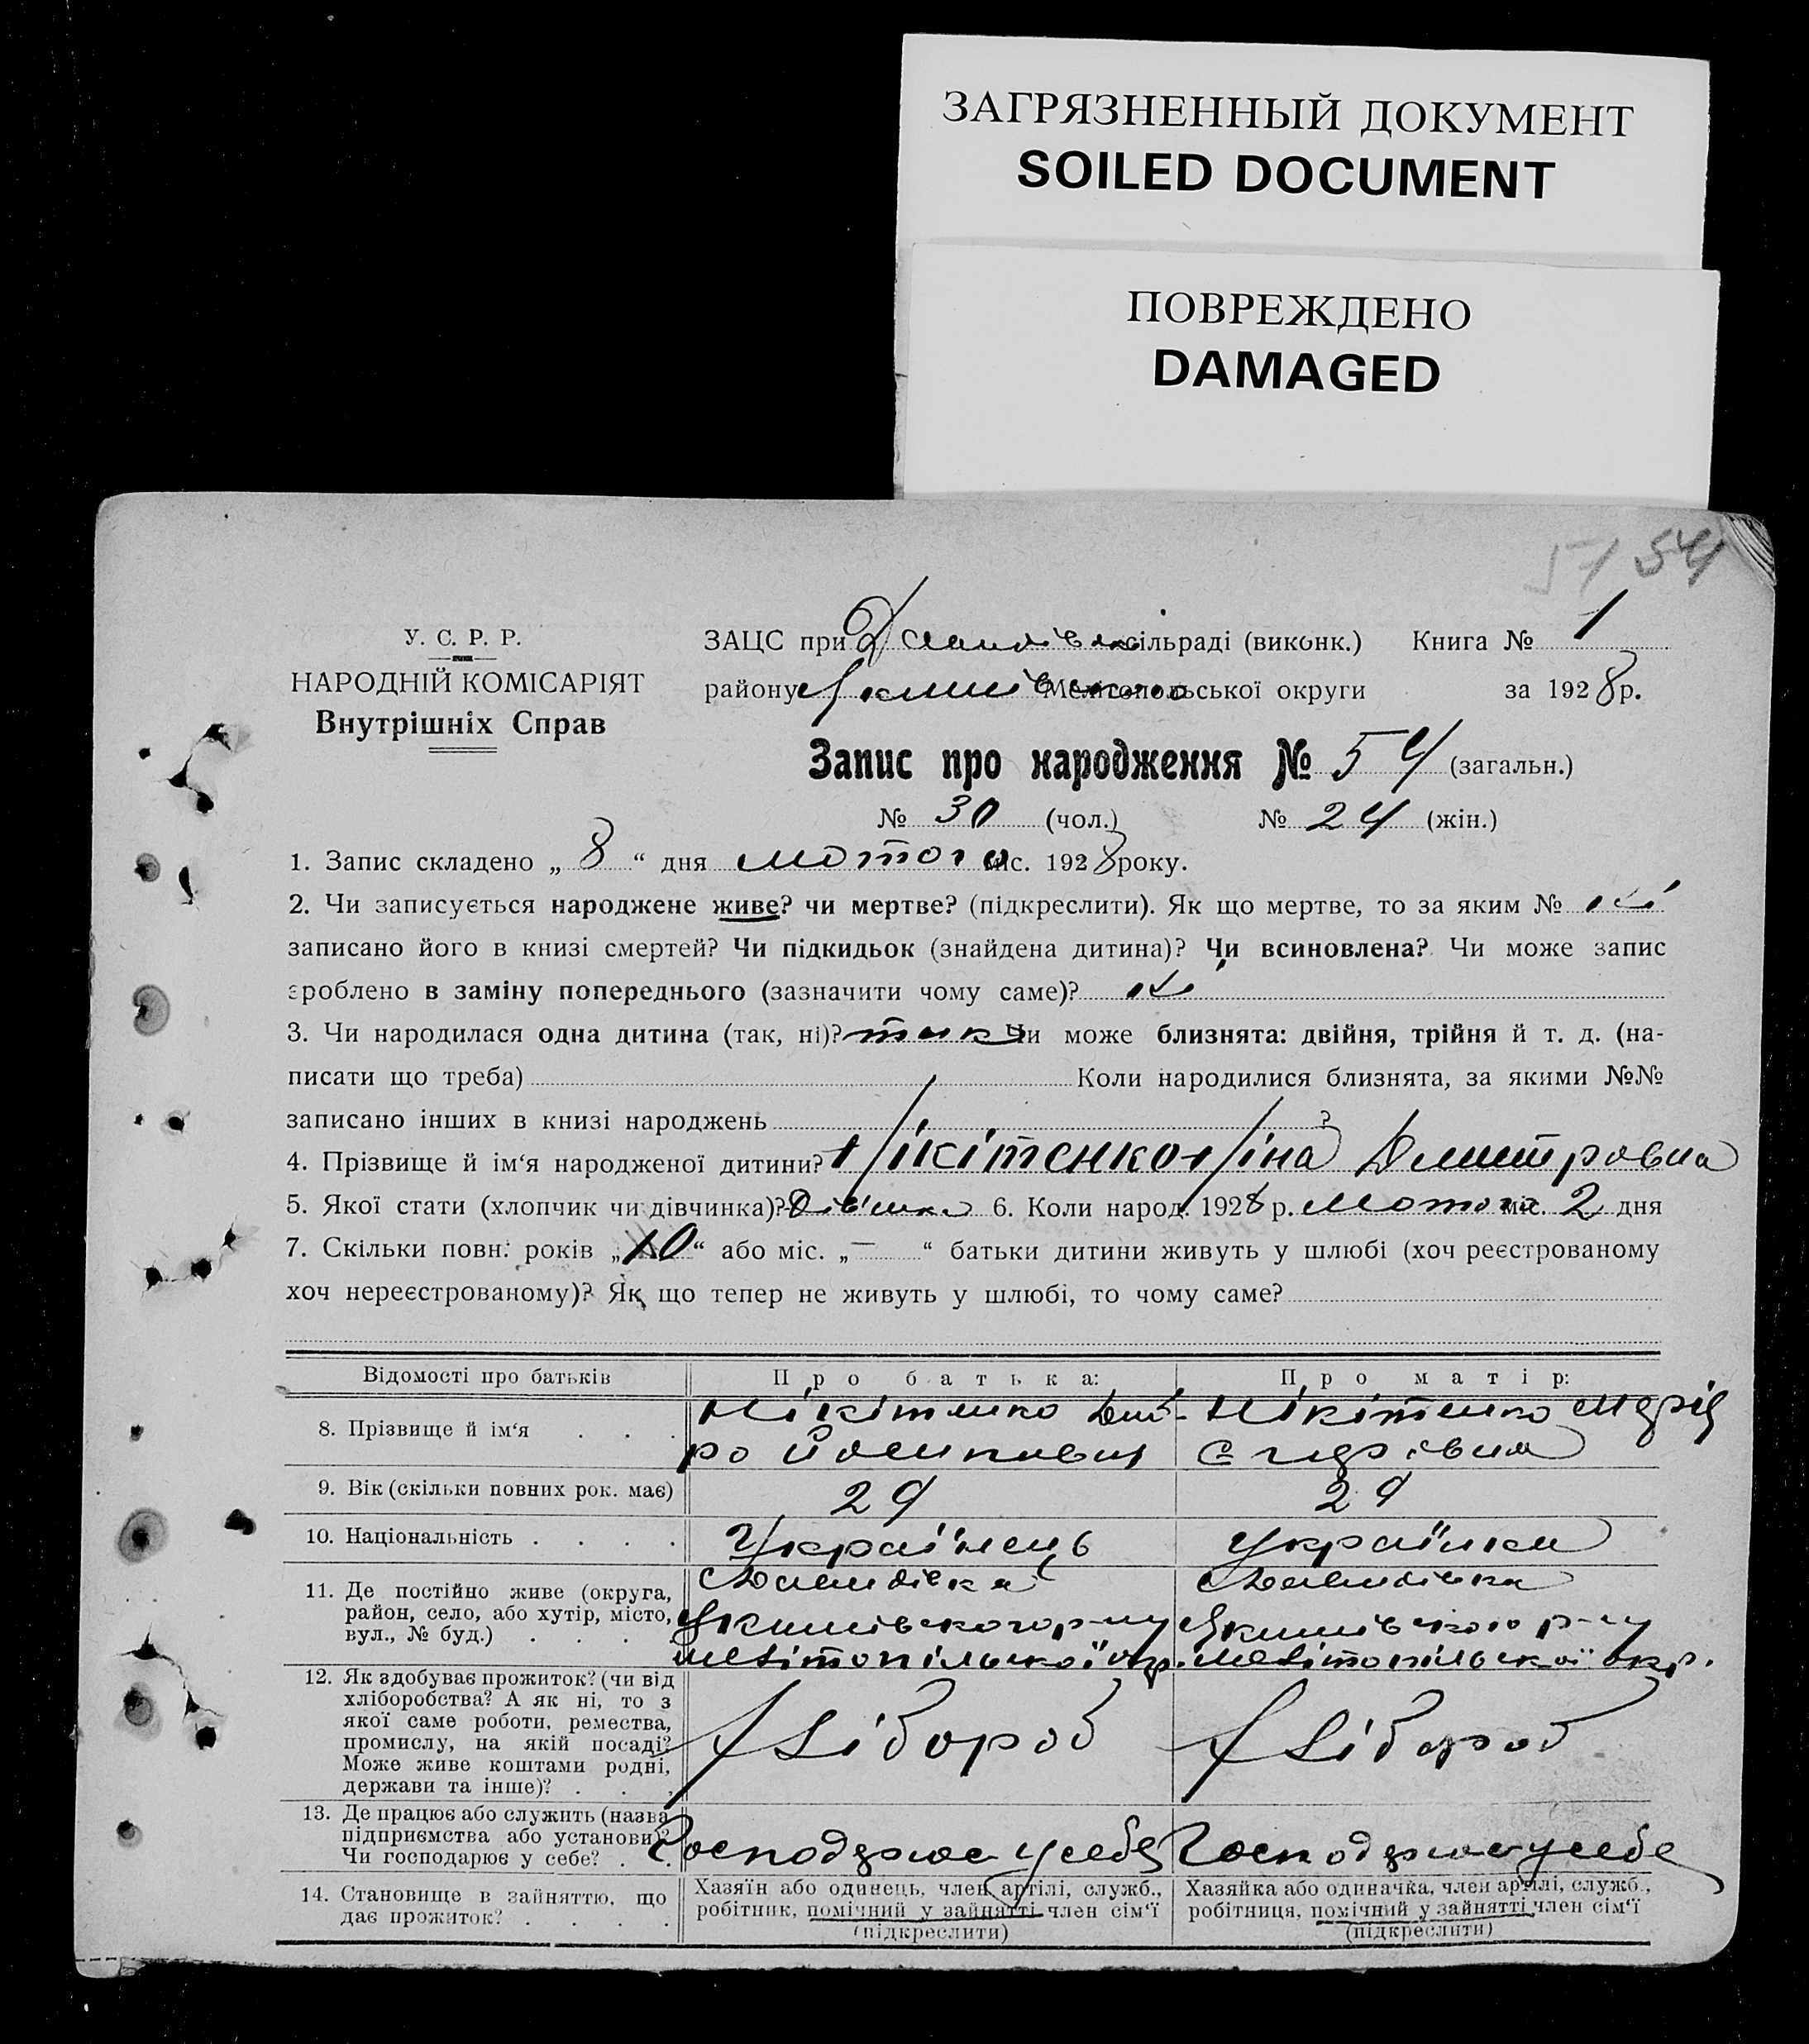 ЗАГРЯЗНЕННЫЙ ДОКУМЕНТ
SOILED DOCUMENT
ПОВРЕЖДЕНО
DAMAGED
51 54
У. С. Р. Р.
НАРОДНІЙ КОМІСАРІЯТ
Внутрішніх Справ
ЗАЦС при сільраді (виконк.) Книга № 1
району Мелітопольської округи за 1928 р.
Запис про народження № 54 (загальн.)
№ 30 (чол.) № 24 (жін.)
1. Запис складено „ 8 “ дня лютого міс. 1928 року.
2. Чи записується народжене живе? чи мертве? (підкреслити). Як що мертве, то за яким № ні
записано його в книзі смертей? Чи підкидьок (знайдена дитина)? Чи всиновлена? Чи може запис
зроблено в заміну попереднього (зазначити чому саме)? ні
3. Чи народилася одна дитина (так, ні)? так Чи може близнята: двійня, трійня й т. д. (на-
писати що треба) Коли народилися близнята, за якими №№
записано інших в книзі народжень ?
4. Прізвище й ім‘я народженої дитини? Нікітенко Ніна Дмитровна
5. Якої стати (хлопчик чи дівчинка)? 6. Коли народ. 1928 р. лютого міс. 2 дня
7. Скільки повн. років „10“ або міс. „—“ батьки дитини живуть у шлюбі (хоч реєстрованому
хоч нереєстрованому)? Як що тепер не живуть у шлюбі, то чому саме?
Відомості про батьків Про батька: Про матір:
8. Прізвище й ім‘я . . . Нікітенко Нікітенко Марія
9. Вік (скільки повних рок. має) 29 29
10. Національність . . . . Українець Українка
11. Де постійно живе (округа,
район, село, або хутір, місто,
вул., № буд.) . . . . Якимівського р-ну Якимівського р-ну
Мелітопільської окр. Мелітопільської окр.
12. Як здобуває прожиток? (чи від
хліборобства? А як ні, то з
якої саме роботи, ремества,
промислу, на якій посаді?
Може живе коштами родні,
держави та інше)? . . . Хлібороб Хлібороб
13. Де працює або служить (назва
підприємства або установи)?
Чи господарює у себе? . . Господарює у себе Господарює у себе
14. Становище в зайняттю, що
дає прожиток? . . . .
Хазяїн або одинець, член артілі, служб.,
робітник, помічний у зайнятті член сім‘ї
(підкреслити)
Хазяйка або одиначка, член артілі, служб.,
робітниця, помічний у зайнятті член сім‘ї
(підкреслити)